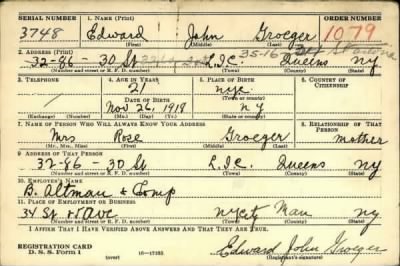 SERIAL NUMBER 1. NAME (Print) ORDER NUMBER
3748 Edward John Groeger 1079
(First) (Middle) (Last)
2. ADDRESS (Print)
32-86 - 30 St L.I.C. Queens NY
(Number and street or R. F. D. number) (Town) (County) (State)
3. TELEPHONE 4. AGE IN YEARS 5. PLACE OF BIRTH 6. COUNTRY OF CITIZENSHIP
21 NYC
DATE OF BIRTH (Town or county)
Nov 26, 1918 N Y
(Exchange) (Number) (Mo.) (Day) (Yr.) (State or country)
7. NAME OF PERSON WHO WILL ALWAYS KNOW YOUR ADDRESS 8. RELATIONSHIP OF THAT PERSON
Mrs Rose Groeger mother
(Mr., Mrs., Miss) (First) (Middle) (Last)
9. ADDRESS OF THAT PERSON
32-86 - 30 St L.I.C. Queens NY
(Number and street or R. F. D. number) (Town) (County) (State)
10. EMPLOYER'S NAME
B. Altman & Comp
11. PLACE OF EMPLOYMENT OR BUSINESS
34 St Ave NYCity Man NY
(Number and street or R. F. D. number) (Town) (County) (State)
I AFFIRM THAT I HAVE VERIFIED ABOVE ANSWERS AND THAT THEY ARE TRUE.
REGISTRATION CARD
D. S. S. Form 1 (over) 16-17105 Edward John Groeger
(Registrant's signature)